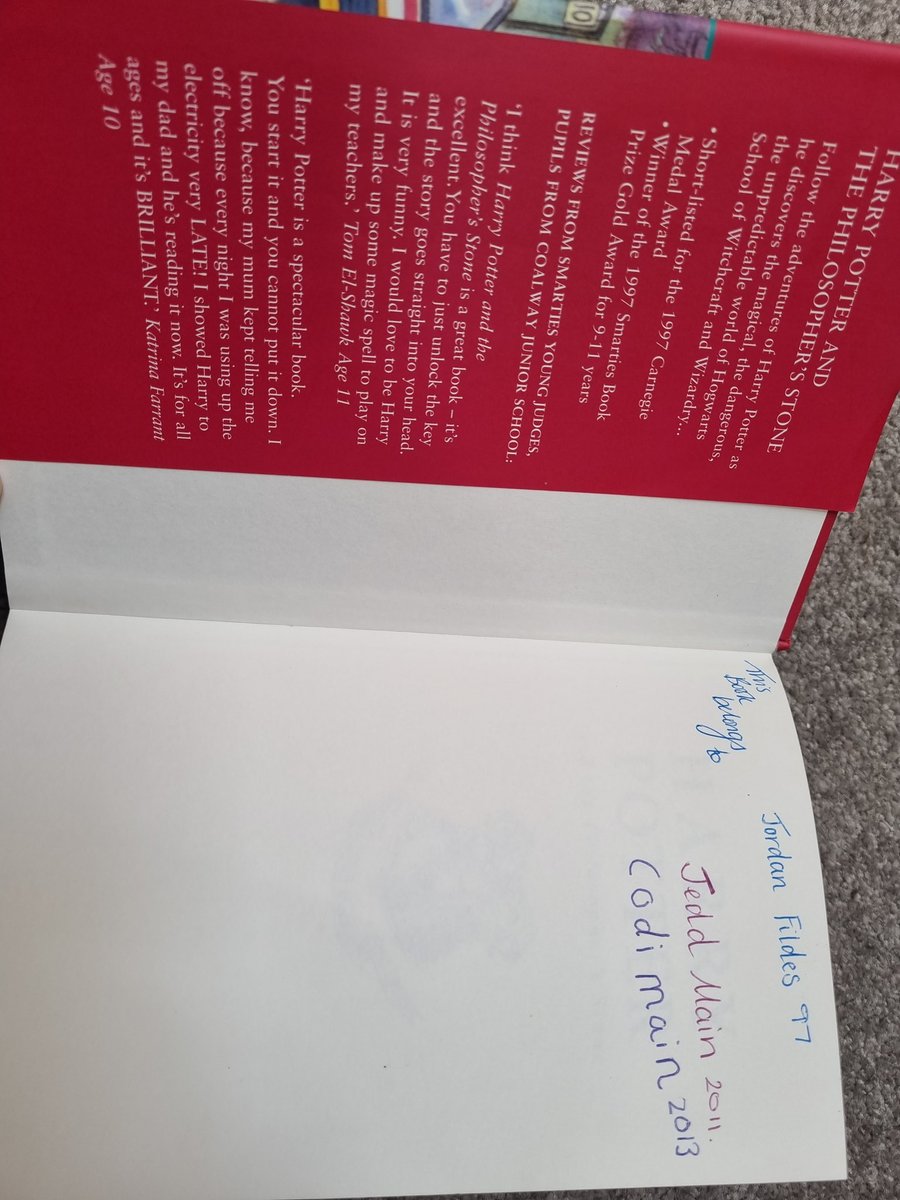 HARRY POTTER AND
THE PHILOSOPHER'S STONE
Follow the adventures of Harry Potter as
he discovers the magical, the dangerous,
the unpredictable world of Hogwarts
School of Witchcraft and Wizardry...
• Short-listed for the 1997 Carnegie
Medal Award
• Winner of the 1997 Smarties Book
Prize Gold Award for 9-11 years
REVIEWS FROM SMARTIES YOUNG JUDGES,
PUPILS FROM COALWAY JUNIOR SCHOOL:
'I think Harry Potter and the
Philosopher's Stone is a great book – it's
excellent. You have to just unlock the key
and the story goes straight into your head.
It is very funny. I would love to be Harry
and make up some magic spell to play on
my teachers.' Tom El-Shawk Age 11
'Harry Potter is a spectacular book.
You start it and you cannot put it down. I
know, because my mum kept telling me
off because every night I was using up the
electricity very LATE! I showed Harry to
my dad and he's reading it now. It's for all
ages and it's BRILLIANT.' Katrina Farrant
Age 10
10
This
Book
belongs
to
Jordan Fildes 97
Jedd Main 2011.
Codi Main 2013